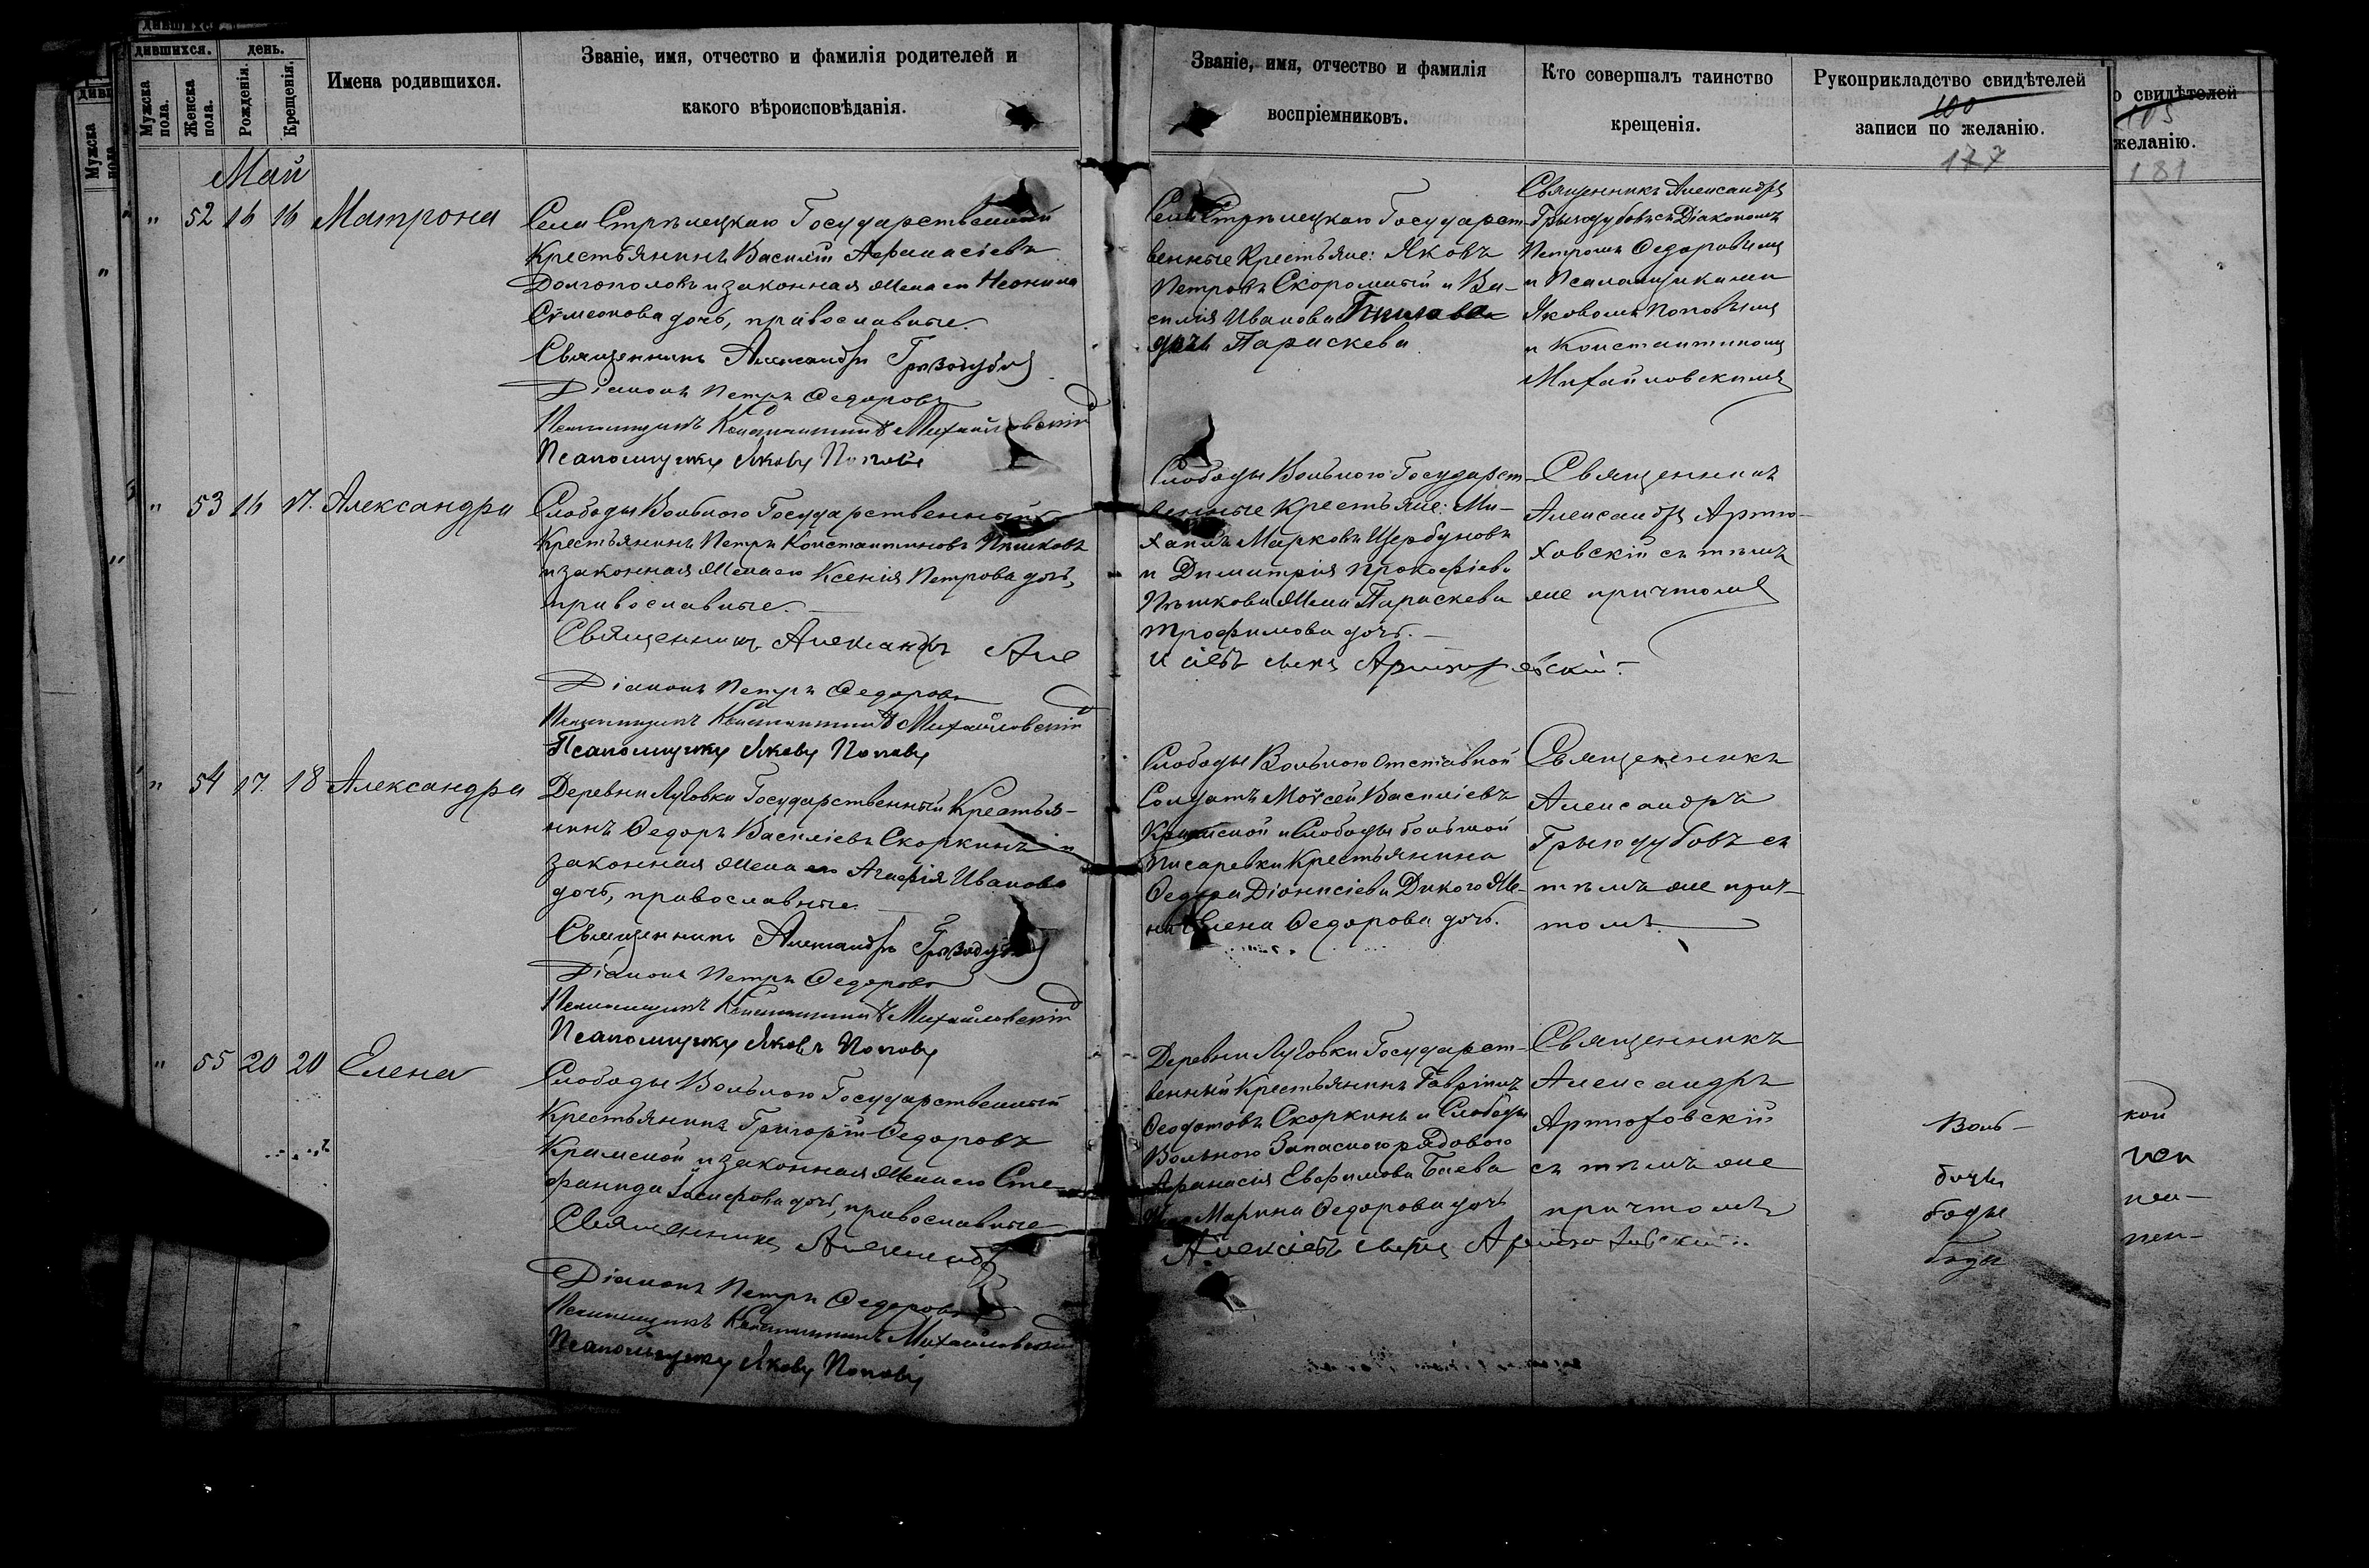 дившихся.
день.
Мужска пола.
Женска пола.
Рожденія.
Крещенія.
Имена родившихся.
Званіе, имя, отчество и фамилія родителей и
какого вѣроисповѣданія.
Званіе, имя, отчество и фамилія
воспріемниковъ.
Кто совершалъ таинство
крещенія.
Рукоприкладство свидѣтелей
100
записи по желанію.
177
Май
" 52 16 16 Матрона
Села Стрѣлецкаго Государственный
Крестьянинъ Василій Аѳанасіевъ
Долгополовъ и законная жена его Неонила
Сѵмеонова дочь, православные.
Священникъ Александръ Грызодубовъ
Діаконъ Петръ Ѳедоровъ
Псаломщикъ Константинъ Михайловскій
Псаломщикъ Яковъ Поповъ
Села Стрѣлецкаго Государст-
венные Крестьяне: Яковъ
Петровъ Скоромный и Ва-
силія Иванова
дочь Параскева
Священникъ Александръ
Грызодубовъ съ Діакономъ
Петромъ Ѳедоровымъ
и Псаломщиками
Яковомъ Поповымъ
и Константиномъ
Михайловскимъ
" 53 16 17. Александра
Слободы Вольного Государственный
Крестьянинъ Петръ Константиновъ Пѣшковъ
и законная жена его Ксенія Петрова дочь,
православные.
Священникъ Александръ Але
Діаконъ Петръ Ѳедоровъ
Псаломщикъ Константинъ Михайловскій
Псаломщикъ Яковъ Поповъ
Слободы Вольного Государст-
венные Крестьяне: Ми-
хаилъ Марковъ Щербуновъ
и Димитрія Прокофіева
Пѣшкова жена Параскева
Трофимова дочь.
Священникъ
Александръ Артю-
ховскій съ тѣмъ
же причтомъ
" 54 17 18 Александра
Деревни Луговки Государственный Крестья-
нинъ Ѳедоръ Василіевъ Скоркинъ и
законная жена его Агафія Иванова
дочь, православные.
Священникъ Александръ Грызодубовъ
Діаконъ Петръ Ѳедоровъ
Псаломщикъ Константинъ Михайловскій
Псаломщикъ Яковъ Поповъ
Слободы Вольного отставной
Солдатъ Моѵсей Василіевъ
Крамской и Слободы большой
Писаревки Крестьянина
Ѳедора Діонисіева Дикого же-
на Елена Ѳедорова дочь.
Священникъ
Александръ
Грызодубовъ съ
тѣмъ же прич-
томъ
" 55 20 20 Елена
Слободы Вольного Государственный
Крестьянинъ Григорій Ѳедоровъ
Крамской и законная жена его Сте-
фанида Іосифова дочь, православные
Священникъ Александръ
Діаконъ Петръ Ѳедоровъ
Псаломщикъ Константинъ Михайловскій
Псаломщикъ Яковъ Поповъ
Деревни Луговки Государст-
венный Крестьянинъ Гавріилъ
Ѳеодотовъ Скоркинъ и Слободы
Вольного Запасного рядового
Афанасія Евфимова Баева
жена Марина Ѳедорова дочь
Алексіевъ сынъ Артюховскій
Священникъ
Александръ
Артюховскій
съ тѣмъ же
причтомъ
Воль-
боды
о свидѣтелей
105
желанію.
181
кой